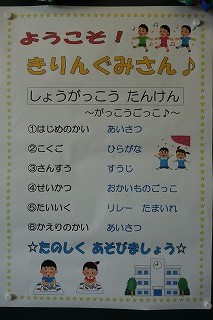 ようこそ!
きりんぐみさん♪
しょうがっこう たんけん
~がっこうごっこ♪~
①はじめのかい あいさつ
②こくご ひらがな
③さんすう すうじ
④せいかつ おかいものごっこ
⑤たいいく リレー たまいれ
⑥かえりのかい あいさつ
☆たのしく あそびましょう☆